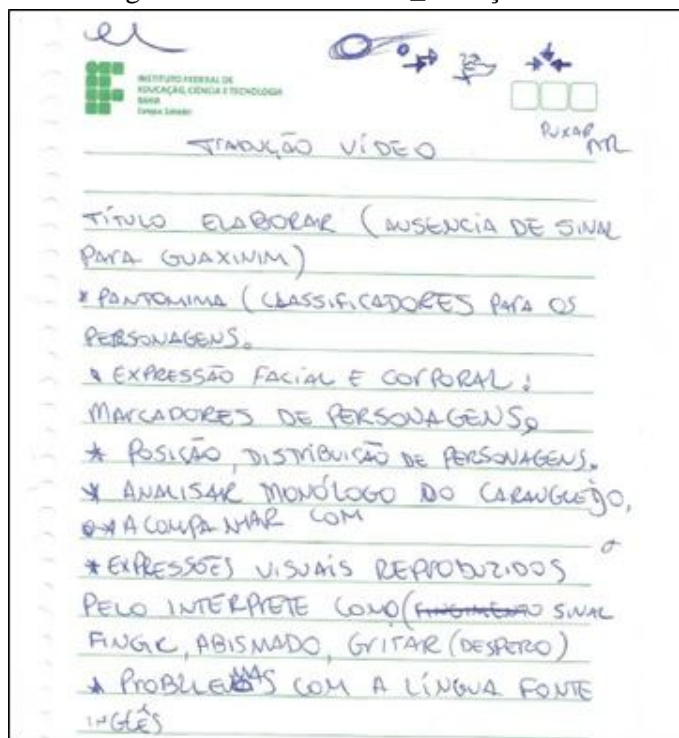 INSTITUTO FEDERAL DE
EDUCAÇÃO, CIÊNCIA E TECNOLOGIA
BAHIA
Campus Salvador
PUXAR
TRADUÇÃO VÍDEO
TÍTULO ELABORAR (AUSENCIA DE SINAL
PARA GUAXINIM)
* PANTOMIMA (CLASSIFICADORES PARA OS
PERSONAGENS.
* EXPRESSÃO FACIAL E CORPORAL:
MARCADORES DE PERSONAGENS.
* POSIÇÃO, DISTRIBUIÇÃO DE PERSONAGENS.
* ANALISAR MONÓLOGO DO CARANGUEIJO,
* ACOMPANHAR COM
* EXPRESSÕES VISUAIS REPRODUZIDOS
PELO INTÉRPRETE COMO (FINGIMENTO SINAL
FINGIR, ABISMADO, GRITAR (DESPERO)
* PROBLEMAS COM A LÍNGUA FONTE
INGLÊS